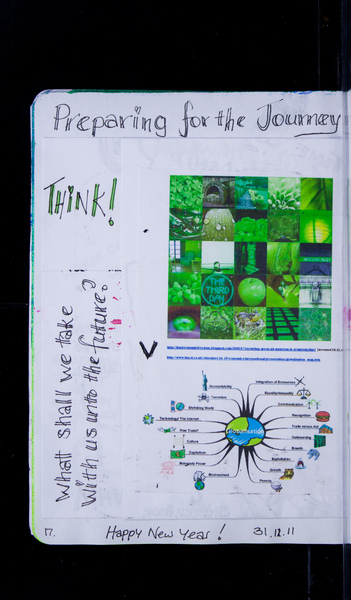 Preparing for the Journey
THINK!
THE
THIRD
DAY
What shall we take
with us into the future?
Accountability
Terrorism
Melting Study
Technology/ The Internet
Fair Trade?
Culture
Capitalism
Power
Environment
Integration of Economies
Equality/Inequality
Communication
Recognition
Trade versus Aid
Outsourcing
Brands
Exploitation
Growth
Poverty
Globalisation
17.
Happy New Year!
31.12.11